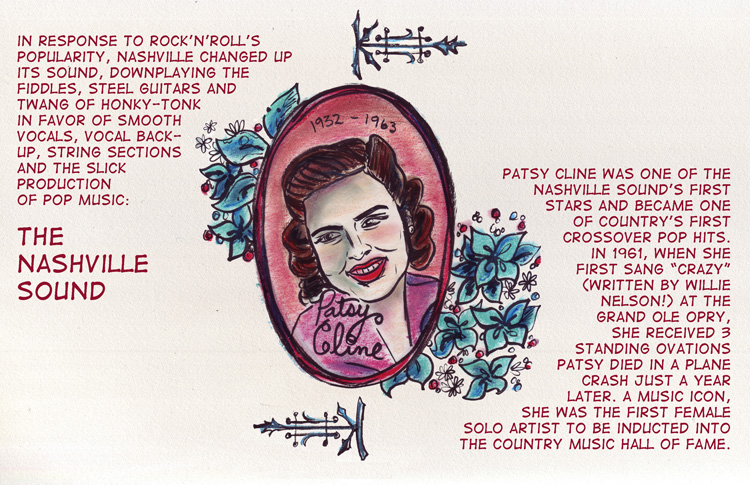 IN RESPONSE TO ROCK'N'ROLL'S
POPULARITY, NASHVILLE CHANGED UP
ITS SOUND, DOWNPLAYING THE
FIDDLES, STEEL GUITARS AND
TWANG OF HONKY-TONK
IN FAVOR OF SMOOTH
VOCALS, VOCAL BACK-
UP, STRING SECTIONS
AND THE SLICK
PRODUCTION
OF POP MUSIC:
THE
NASHVILLE
SOUND
1932 - 1963
Patsy
Cline
PATSY CLINE WAS ONE OF THE
NASHVILLE SOUND'S FIRST
STARS AND BECAME ONE
OF COUNTRY'S FIRST
CROSSOVER POP HITS.
IN 1961, WHEN SHE
FIRST SANG "CRAZY"
(WRITTEN BY WILLIE
NELSON!) AT THE
GRAND OLE OPRY,
SHE RECEIVED 3
STANDING OVATIONS
PATSY DIED IN A PLANE
CRASH JUST A YEAR
LATER. A MUSIC ICON,
SHE WAS THE FIRST FEMALE
SOLO ARTIST TO BE INDUCTED INTO
THE COUNTRY MUSIC HALL OF FAME.